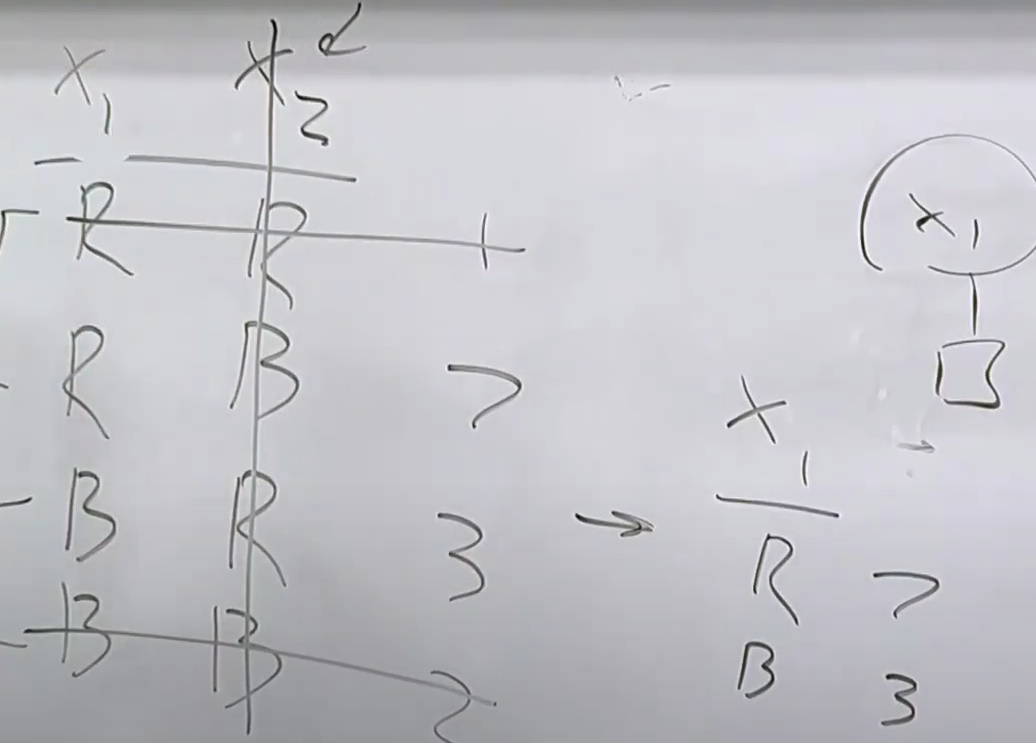 X₁ X₂
R R 1
R B 7
B R 3
B B 2
X₁
X₁
R 7
B 3